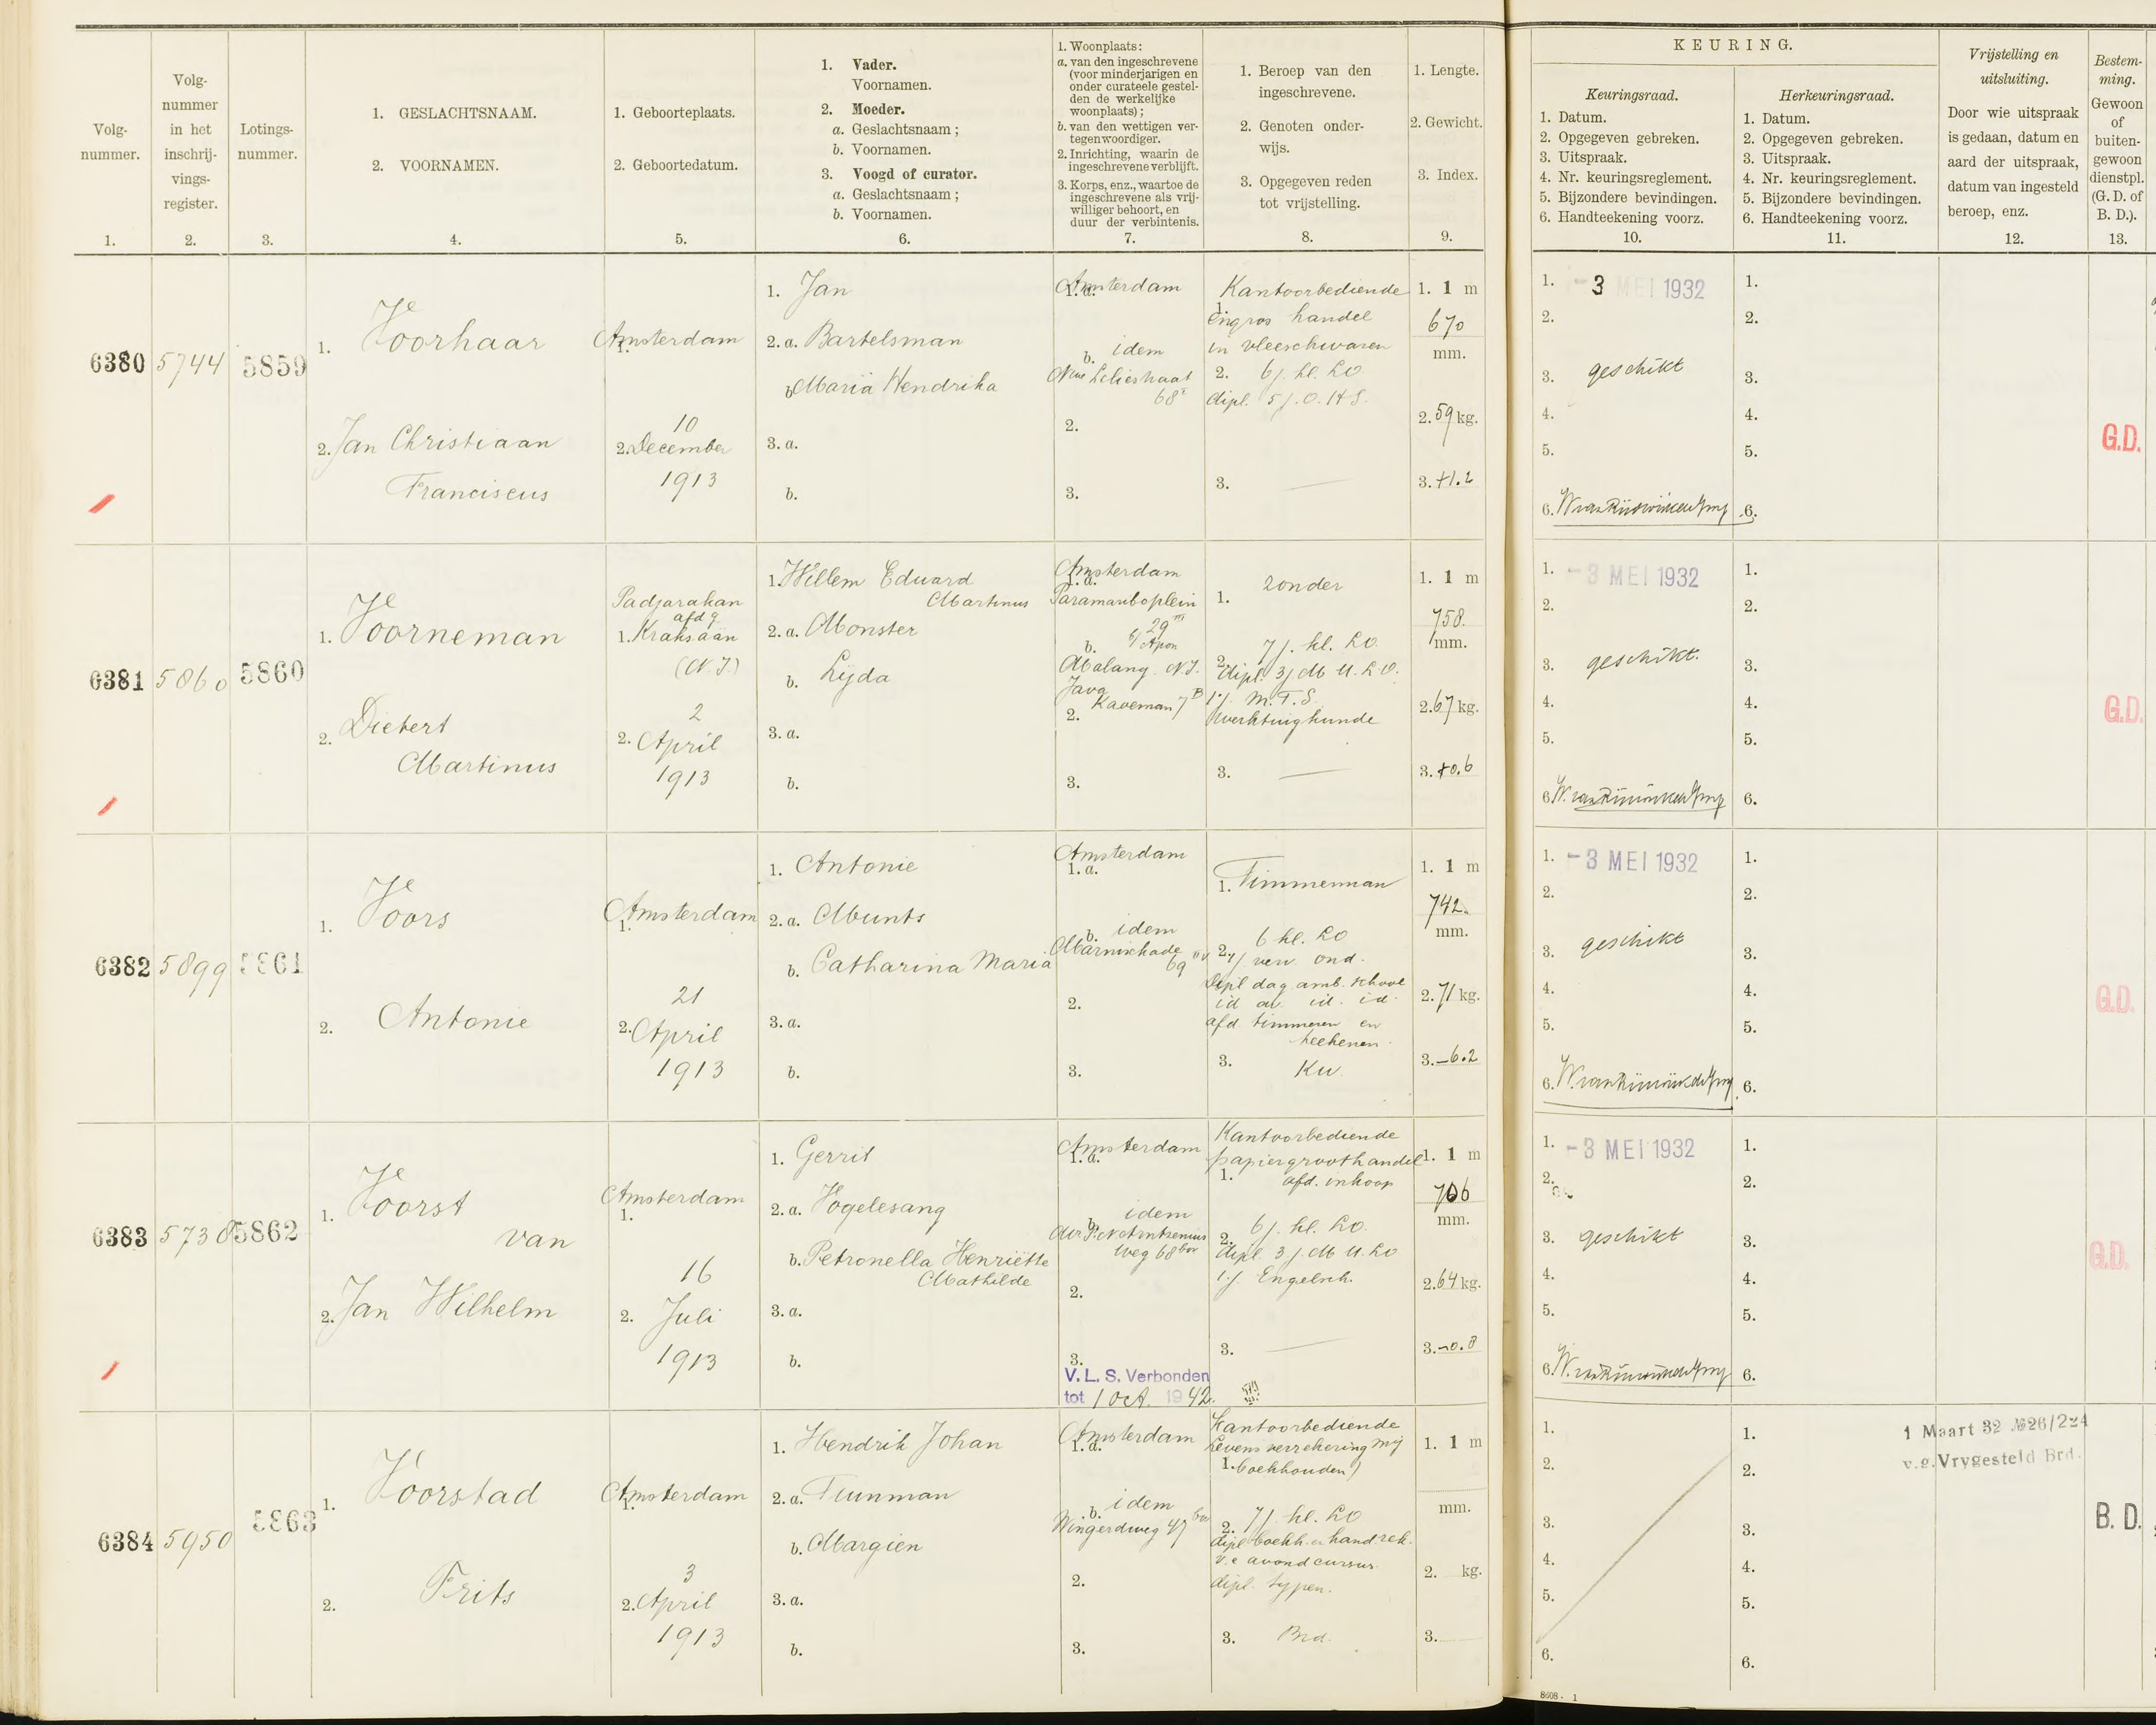 Volg-
nummer.
1.
Volg-
nummer
in het
inschrij-
vings-
register.
2.
Lotings-
nummer.
3.
1. GESLACHTSNAAM.
2. VOORNAMEN.
4.
1. Geboorteplaats.
2. Geboortedatum.
5.
1. Vader.
Voornamen.
2. Moeder.
a. Geslachtsnaam;
b. Voornamen.
3. Voogd of curator.
a. Geslachtsnaam;
b. Voornamen.
6.
1. Woonplaats:
a. van den ingeschrevene
(voor minderjarigen en
onder curateele gestel-
den de werkelijke
woonplaats);
b. van den wettigen ver-
tegenwoordiger.
2. Inrichting, waarin de
ingeschrevene verblijft.
3. Korps, enz., waartoe de
ingeschrevene als vrij-
williger behoort, en
duur der verbintenis.
7.
1. Beroep van den
ingeschrevene.
2. Genoten onder-
wijs.
3. Opgegeven reden
tot vrijstelling.
8.
1. Lengte.
2. Gewicht.
3. Index.
9.
KEURING.
Keuringsraad.
1. Datum.
2. Opgegeven gebreken.
3. Uitspraak.
4. Nr. keuringsreglement.
5. Bijzondere bevindingen.
6. Handteekening voorz.
10.
Herkeuringsraad.
1. Datum.
2. Opgegeven gebreken.
3. Uitspraak.
4. Nr. keuringsreglement.
5. Bijzondere bevindingen.
6. Handteekening voorz.
11.
Vrijstelling en
uitsluiting.
Door wie uitspraak
is gedaan, datum en
aard der uitspraak,
datum van ingesteld
beroep, enz.
12.
Bestem-
ming.
Gewoon
of
buiten-
gewoon
dienstpl.
(G. D. of
B. D.).
13.
6380 5744 5859
1. Voorhaar
2. Jan Christiaan
Franciscus
1. Amsterdam
10
2. December
1913
1. Jan
2. a. Bartelsman
b. Maria Hendrika
3. a.
b.
1. a. Amsterdam
b. idem
Nwe Leliestraat
68 I
2.
3.
1. Kantoorbediende
Engros handel
in vleeschwaren
2. 6 j. kl. LO
dipl. 5 j. O. HS.
3. —
1. 1 m
670
mm.
2. 59 kg.
3. +1.2
1. -3 MEI 1932
2.
3. geschikt
4.
5.
6.
1.
2.
3.
4.
5.
6.
G.D.
6381 5860 5860
1. Voorneman
2. Diebert
Martinus
Padjarakan
afdg
1. Kraksaän
(N. I.)
2
2. April
1913
1. Willem Eduard
Martinus
2. a. Monster
b. Lijda
3. a.
b.
1. a. Amsterdam
Paramariboplein
29 III
b. Malang. N.I.
Java
2.
3.
1. zonder
2. 7 j. kl. LO.
dipl. 3 j M U. L O.
1 j. M. T. S.
Werktuigkunde
3. —
1. 1 m
758.
mm.
2. 67 kg.
3. +0.6
1. -3 MEI 1932
2.
3. geschikt.
4.
5.
6.
1.
2.
3.
4.
5.
6.
G.D.
6382 5899 5861
1. Voors
2. Antonie
1. Amsterdam
21
2. April
1913
1. Antonie
2. a. Munts
b. Catharina Maria
3. a.
b.
1. a. Amsterdam
b. idem
Marnixkade
69
2.
3.
1. Timmerman
2. 6 kl. LO
verv. ond.
Dipl dag. amb. school
id av. id. id.
afd timmeren en
teekenen.
3. Kw.
1. 1 m
742.
mm.
2. 71 kg.
3. -6.2
1. -3 MEI 1932
2.
3. geschikt
4.
5.
6.
1.
2.
3.
4.
5.
6.
G.D.
6383 5738 5862
1. Voorst
van
2. Jan Wilhelm
1. Amsterdam
16
2. Juli
1913
1. Gerrit
2. a. Vogelesang
b. Petronella Henriëtte
Mathilde
3. a.
b.
1. a. Amsterdam
b. idem
weg 68 bov
2.
3.
V. L. S. Verbonden
tot 1 Oct. 1942.
Kantoorbediende
papiergroothandel
1. afd. inkoop
2. 6 j. kl. LO.
dipl. 3 j. M U. LO
1 j. Engelsch.
3. —
1. 1 m
706
mm.
2. 64 kg.
3. -0.8
1. -3 MEI 1932
2.
3. geschikt
4.
5.
6.
1.
2.
3.
4.
5.
6.
G.D.
6384 5950 5863
1. Voorstad
2. Frits
1. Amsterdam
3
2. April
1913
1. Hendrik Johan
2. a. Tuinman
b. Margien
3. a.
b.
1. a. Amsterdam
b. idem
Wingerdweg 47 bov
2.
3.
Kantoorbediende
Levensverzekering Mij
1. boekhouden)
2. 7 j. kl. LO
dipl boekh. en hand. rek.
v. e avondcursus.
dipl. typen.
3. Brd.
1. 1 m
mm.
2. kg.
3.
1.
2.
3.
4.
5.
6.
1.
2.
3.
4.
5.
6.
1 Maart 32 № 26/224
v.g. Vrygesteld Brd.
B. D.
8608 - 1